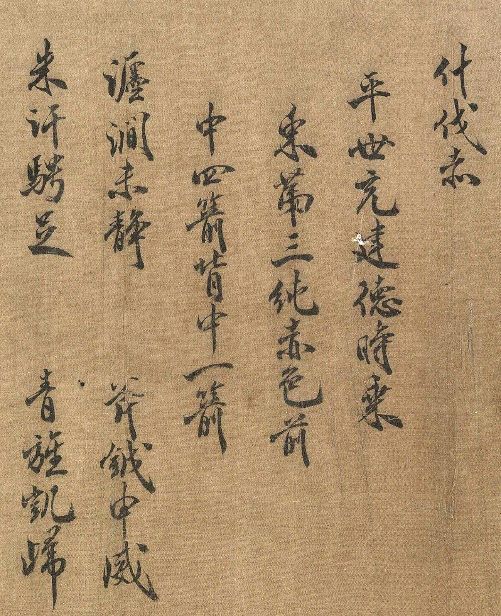 什伐赤
平世充建德時乘
乘第三純赤色前
中四箭背中一箭
瀍澗未靜 斧鉞申威
朱汗騁足 青旌凱歸